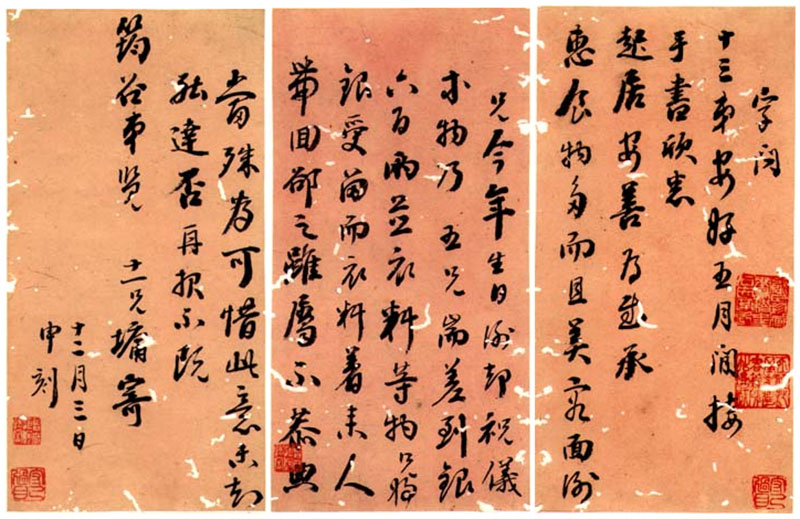 字問
十三弟安好五月間接
手書欣悉
起居安善為慰承
惠食物多而且美容面謝
兄今年生日謝却祝儀
物乃 五兄耑差到銀
六百兩並衣料等物只將
銀受留而衣料着來人
帶回却之雖屬不恭
當殊為可惜此意未知
能達否再報不既
筠谷弟覽 十一兄墉寄
十二月三日
申刻